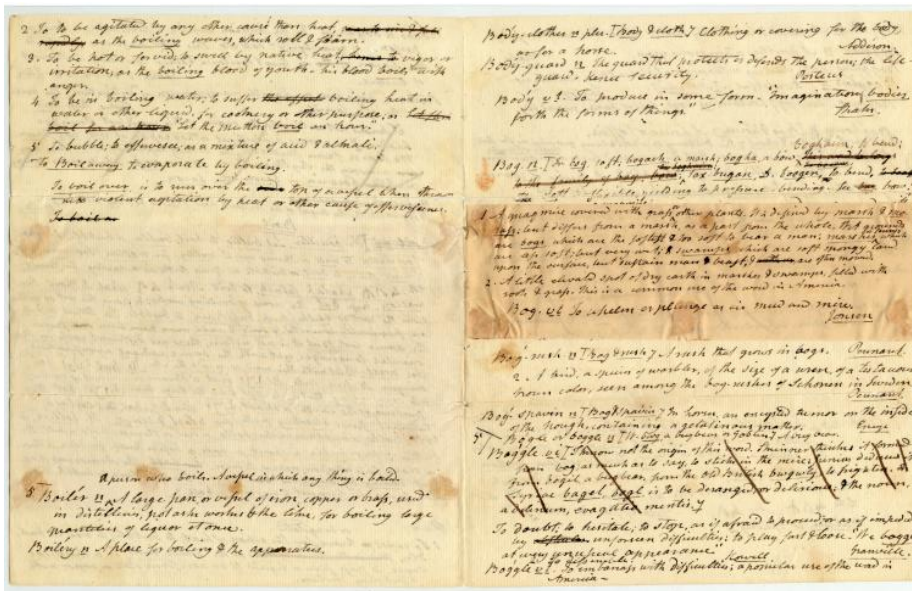 2 To to be agitated by any other cause than heat
as the boiling waves, which roll & foam.
3. To be hot or fervid; to swell by native heat, vigor or
irritation; as the boiling blood of youth. his blood boils with
anger.
4 To be in boiling water; to suffer boiling heat in
water or other liquid, for cookery or other purpose, as
"Let the mutton boil an hour."
5 To bubble; to effervesce; as a mixture of acid & alkali.
To Boil away. to evaporate by boiling.
To boil over, is to run over the top of a vessel when
violent agitation by heat or other cause of effervescence.
To boil
a person who boils. A vessel in which any thing is boiled.
5 Boiler n A large pan, or vessel of iron copper or brass, used
in distilleries, pot ash works & the like, for boiling large
quantities of liquor at once.
Boilery n A place for boiling & the apparatus.
Body-clothes n plu. [body & cloth] Clothing or covering for the body
or for a horse. Addison.
Body-guard n The guard that protects or defends the person; the life
guard. hence security. Porteus
Body v.t. To produce in some form. "Imagination bodies
forth the forms of things" Shaks.
to bend;
Bog n [Ir. bog, soft; bogach, a marsh; bogha, a bow,
Sax bugan, D. boogen, to bend,
soft yielding to pressure, bending. See bow.
1. A quagmire covered with grass or other plants. It is defined by marsh & mo-
rass, but differs from a marsh, as a part from the whole. Wet grounds
are bogs, which are the softest & too soft to bear a man; marshes
are less soft, but very wet; & swamps which are soft spongy land
upon the surface, but sustain man & beast, & are often mowed.
2. A little elevated spot of dry earth in marshes & swamps, filled with
roots & grass. This is a common use of the word in America.
Bog. v.t. To whelm or plunge as in mud and mire.
Jonson
Bog-rush n [bog & rush] A rush that grows in bogs. Pennant.
2. A bird, a species of warbler, of the size of a wren, of a testaceous
brown color, seen among the bog-rushes of Schonen in Sweden
Pennant.
Bog-spavin n [Bog & spavin] In horses, an encysted tumor on the inside
of the hough, containing a gelatinous matter. Encyc
5 Boggle or boggle n [W. a bugbear or goblin]
Boggle v.i. [I know not the origin of this word. Skinner thinks it formed
from bog, as much as to say, to stick in the mire; Junius deduces it
from bogil a bugbear, from the old British to frighten.
Syriac bagel, bogl is to be deranged, or delirious, & the noun,
a delirium, evagatio mentis.]
To doubt; to hesitate; to stop, as if afraid to proceed, or as if impeded
by unforeseen difficulties; to play fast & loose. "We boggle
at every unusual appearance" Granville.
To dissemble. Howell
Boggle v.t. To embarrass with difficulties; a popular use of the word in
America—